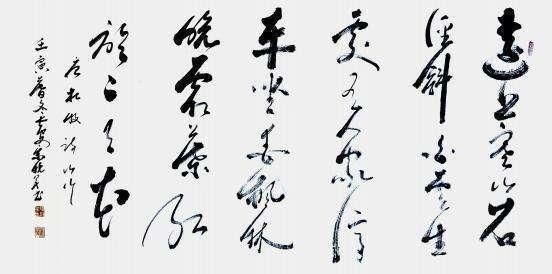 遠上寒山石
徑斜白雲生
處有人家停
車坐愛楓林
晚霜葉紅
於二月花
唐杜牧詩山行
壬寅